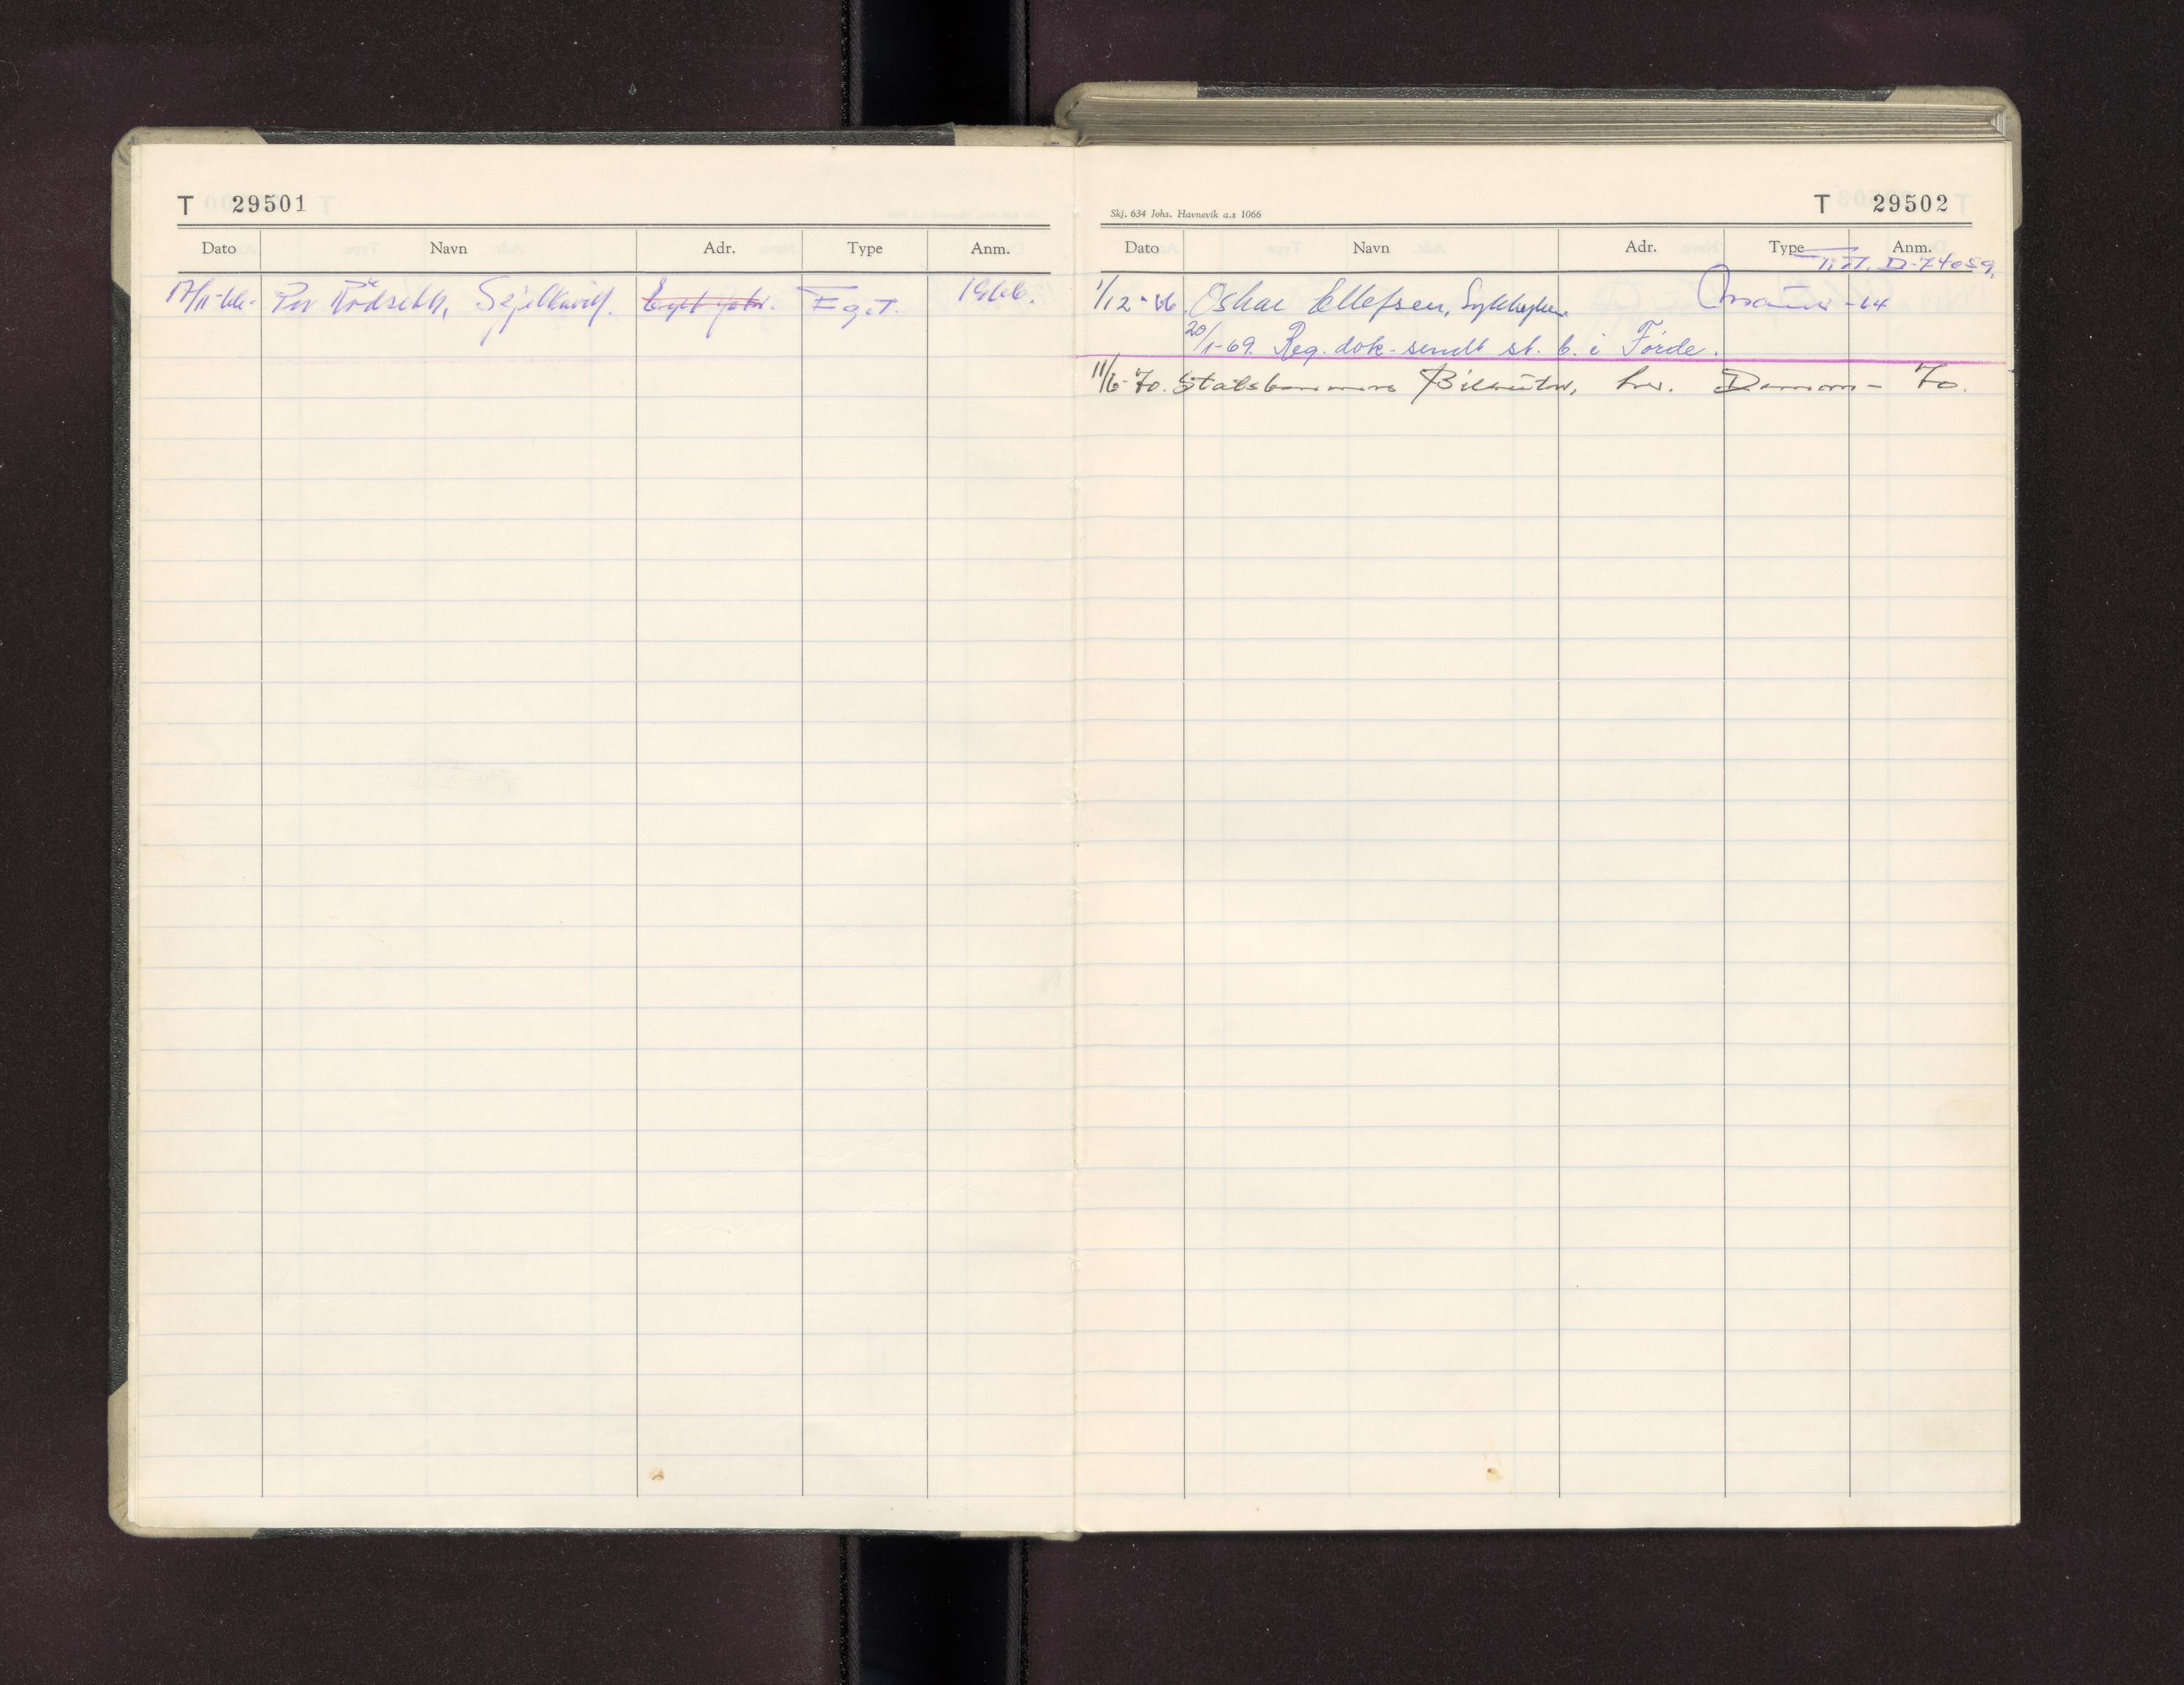 T 29501
Dato Navn Adr. Type Anm.
17/11-66. Per Rødseth, Spjelkavik. Eg.T. 1966.
Skj. 634 Johs. Havnevik a.s 1066
T 29502
Dato Navn Adr. Type Anm.
D-74059.
1/12-66. Oskar Ellefsen, Sykkylven. -64
20/1-69. Reg. dok. sendt st. b. i Førde.
11/6-70. 70.